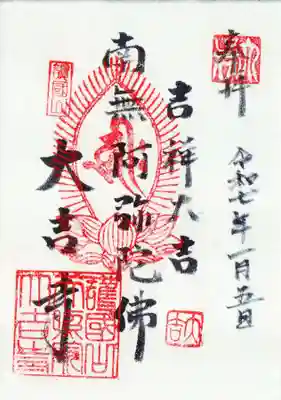 奉拝
令和七年一月五日
吉祥大吉
南無阿弥陀佛
大吉寺
護國山